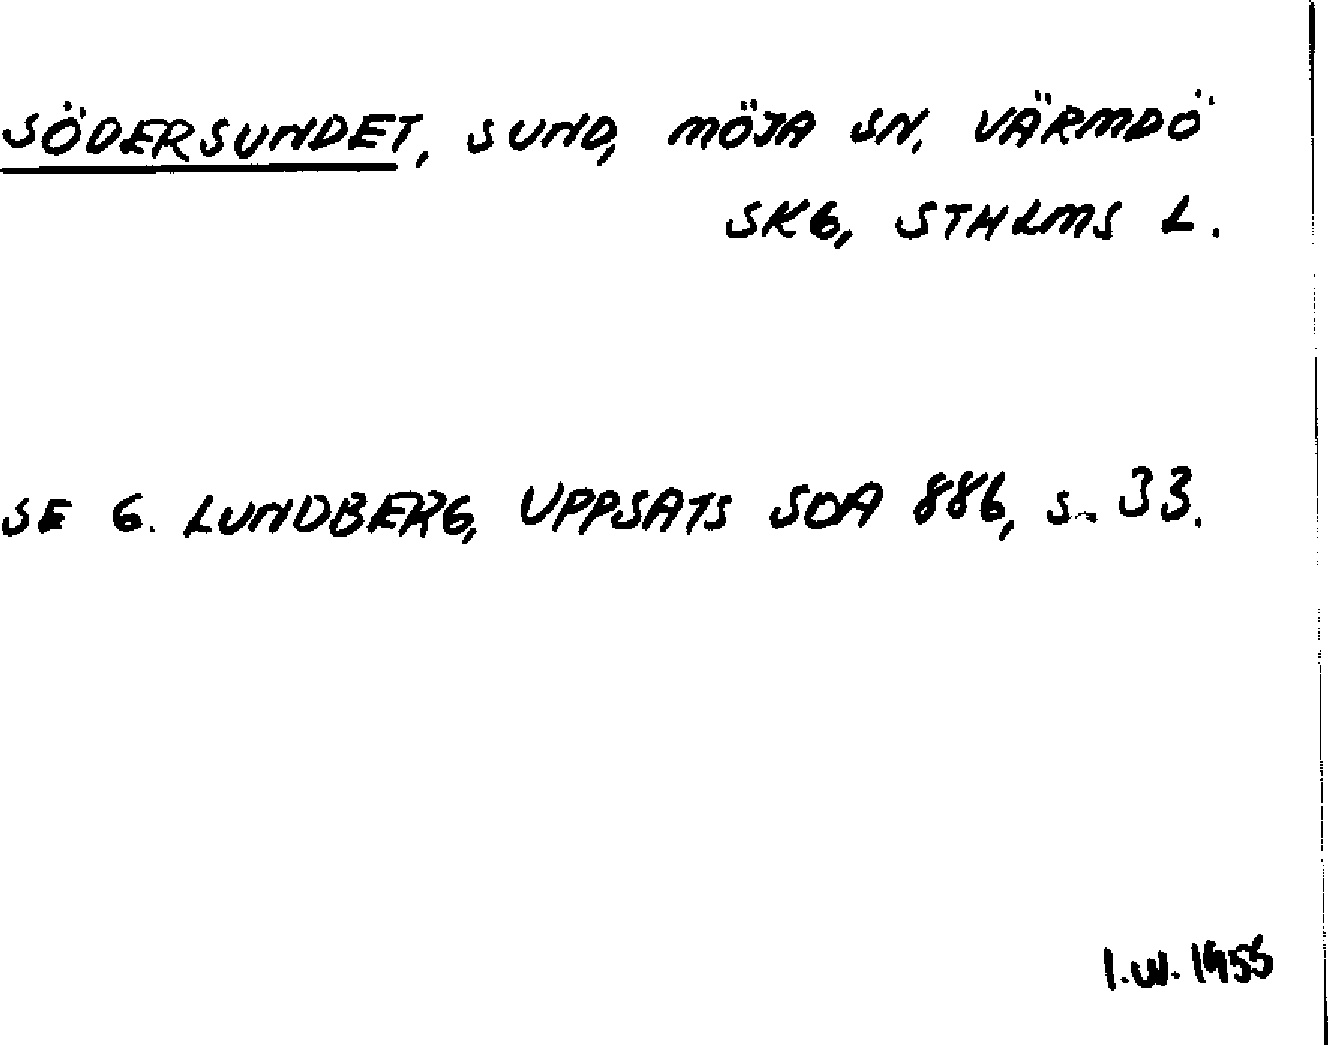 SÖDERSUNDET, SUND, MÖJA SN, VÄRMDÖ
SKG, STHLMS L.
SE G. LUNDBERG, UPPSATS SOA 886, S. 33.
I.W. 1955